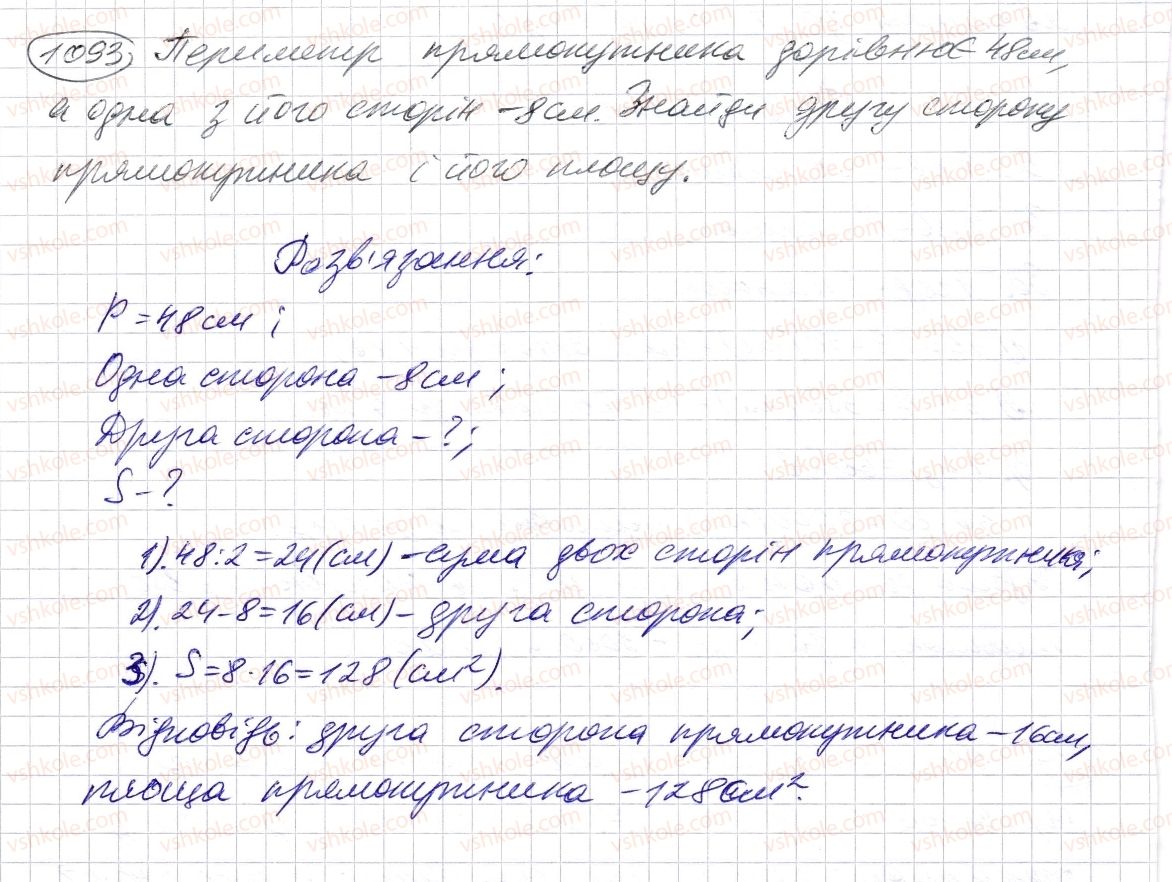 1093 Периметр прямокутника дорівнює 48см,
а одна з його сторін - 8см. Знайди другу сторону
прямокутника і його площу.
Розв'язання:
P = 48см;
Одна сторона - 8см;
Друга сторона - ?;
S - ?
1). 48:2=24(см) - сума двох сторін прямокутника;
2). 24-8=16(см) - друга сторона;
3). S=8·16=128(см²).
Відповідь: друга сторона прямокутника - 16см,
площа прямокутника - 128см².